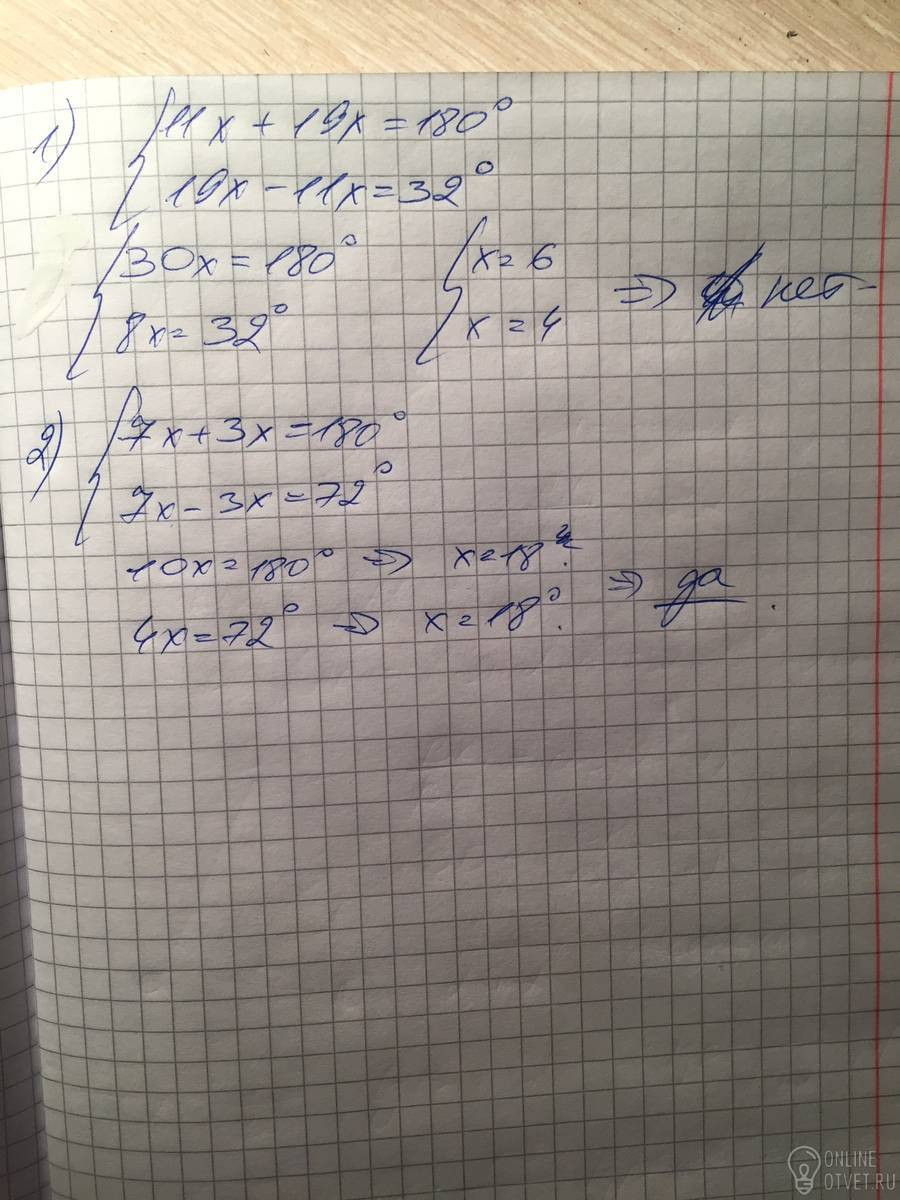 1) 11x + 19x = 180°
19x − 11x = 32°
30x = 180° x = 6
8x = 32° x = 4 ⇒ нет
2) 7x + 3x = 180°
7x − 3x = 72°
10x = 180° ⇒ x = 18°.
4x = 72° ⇒ x = 18°. ⇒ да.
ONLINE
OTVET.RU